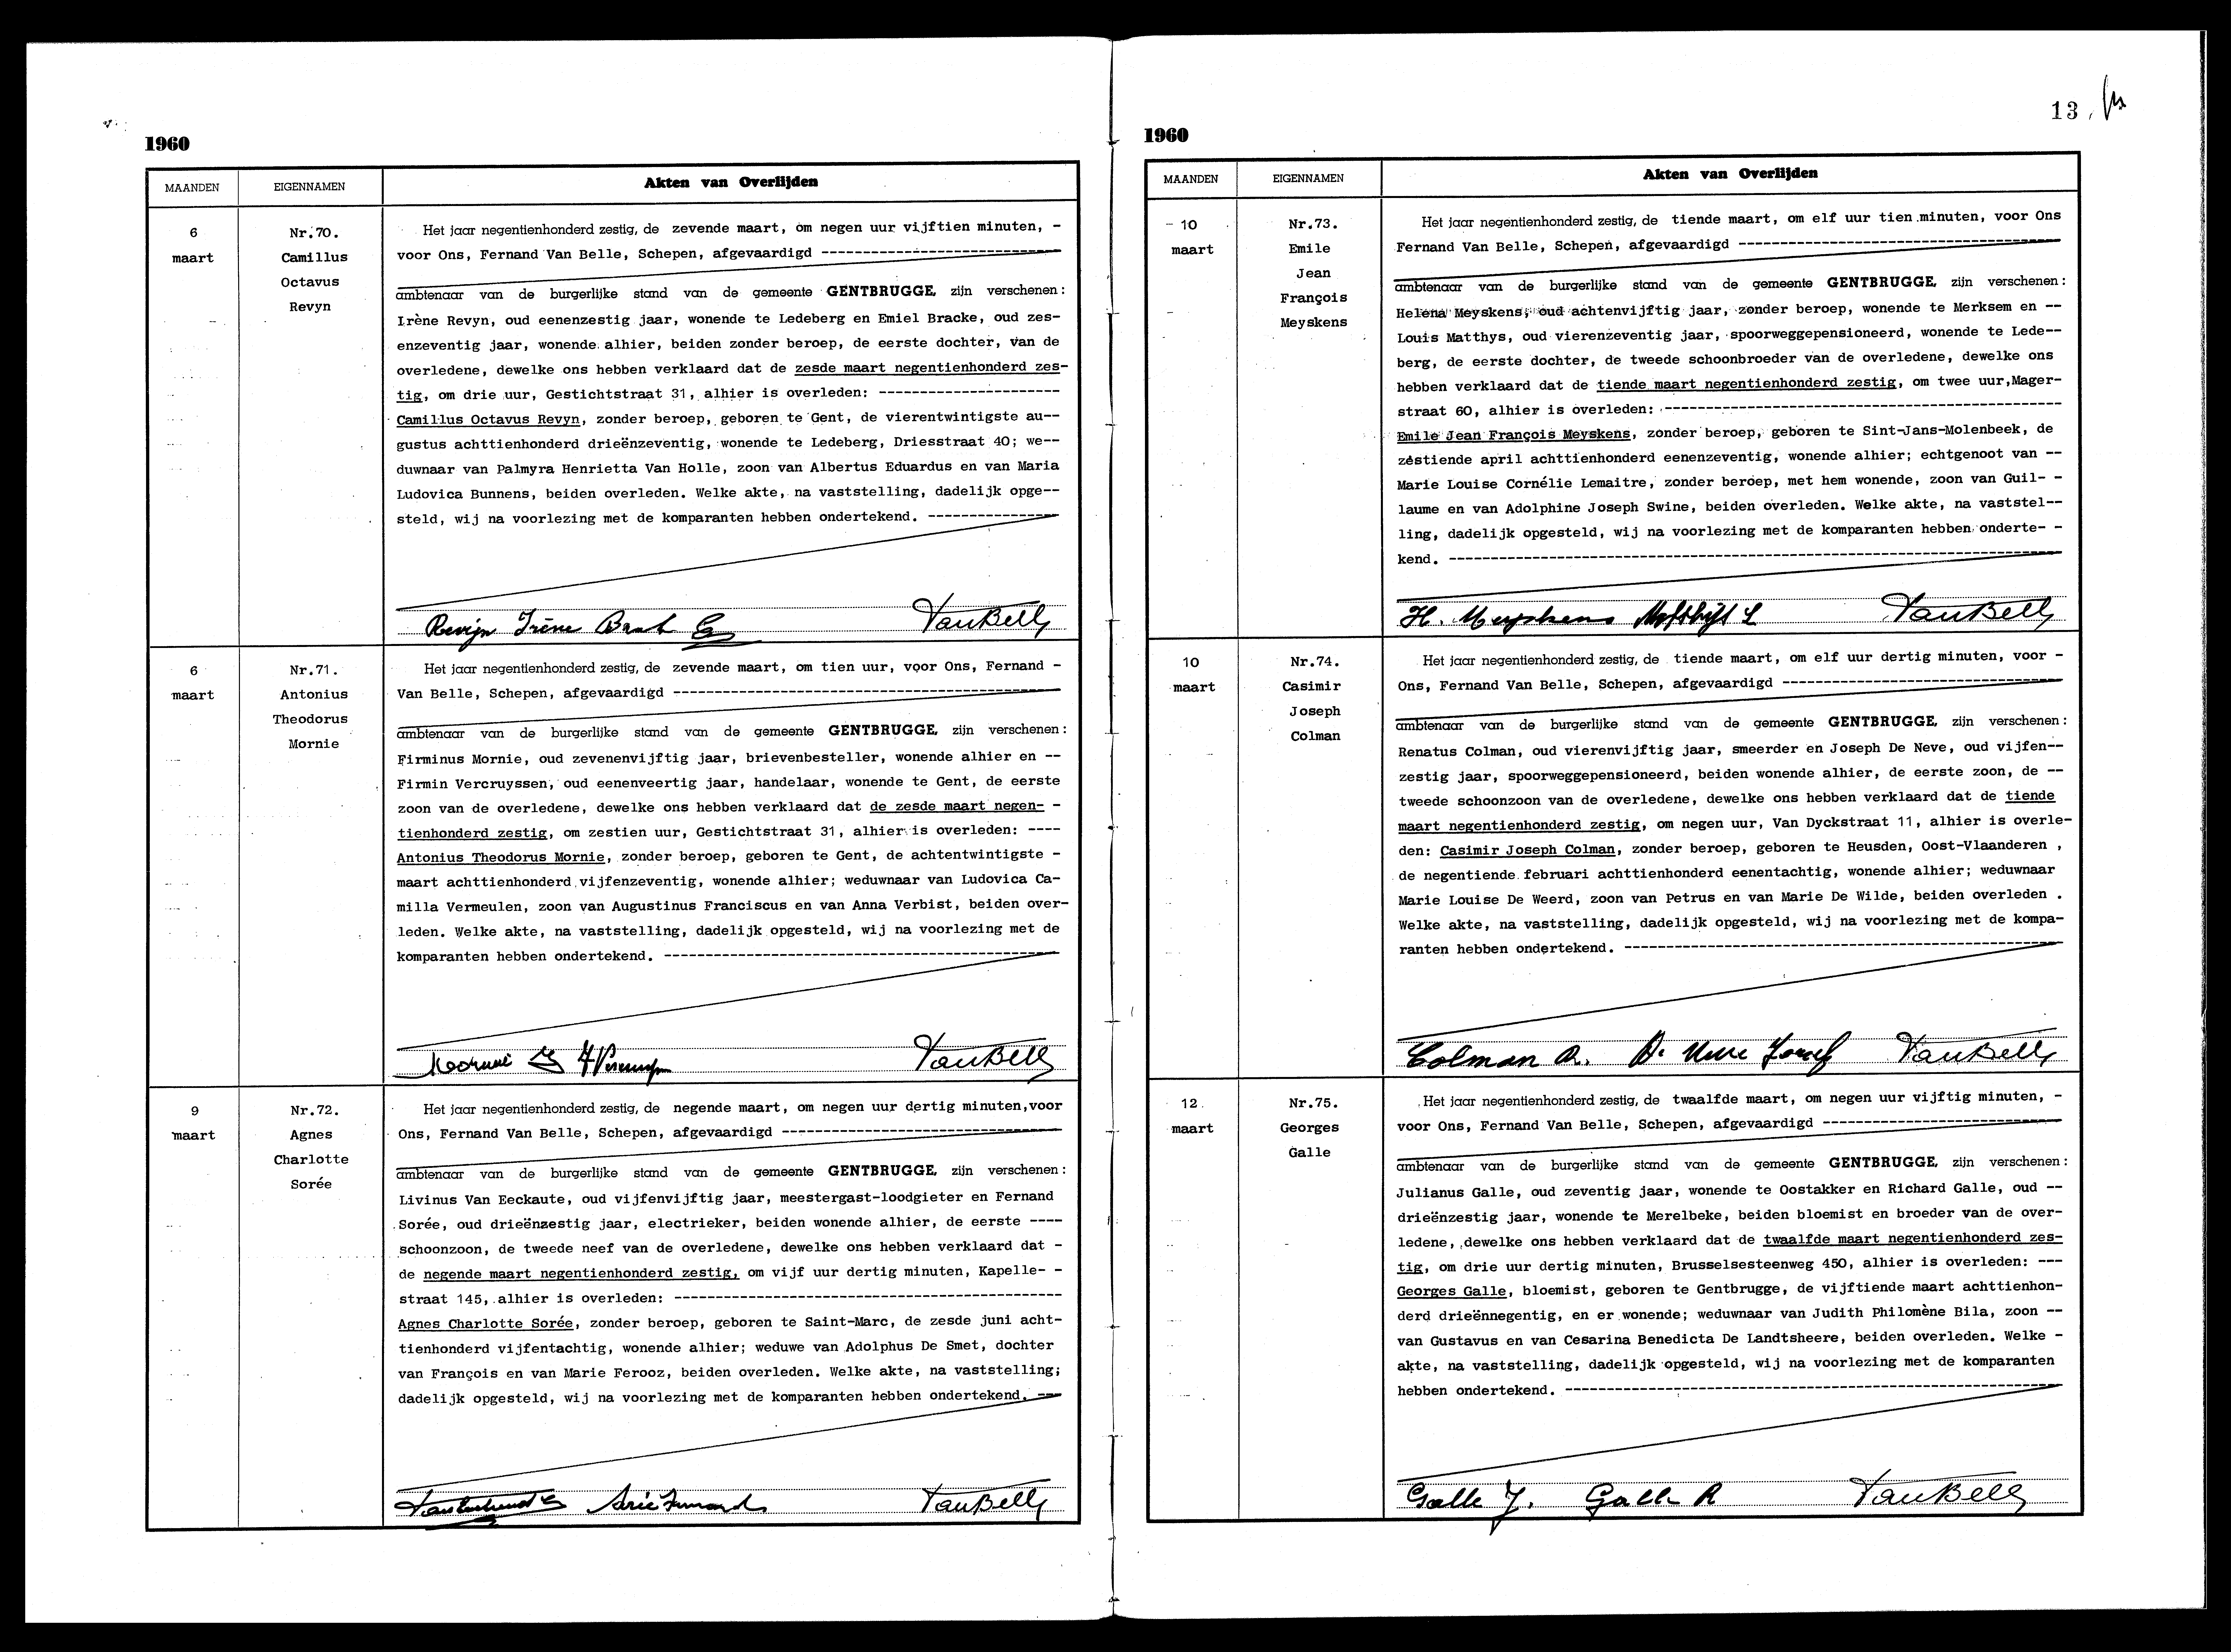 1960
MAANDEN EIGENNAMEN Akten van Overlijden
6
maart
Nr.70.
Camillus
Octavus
Revyn
Het jaar negentienhonderd zestig, de zevende maart, om negen uur vijftien minuten, -
voor Ons, Fernand Van Belle, Schepen, afgevaardigd ---
ambtenaar van de burgerlijke stand van de gemeente GENTBRUGGE, zijn verschenen:
Irène Revyn, oud eenenzestig jaar, wonende te Ledeberg en Emiel Bracke, oud zes-
enzeventig jaar, wonende alhier, beiden zonder beroep, de eerste dochter, van de
overledene, dewelke ons hebben verklaard dat de zesde maart negentienhonderd zes-
tig, om drie uur, Gestichtstraat 31, alhier is overleden: ---
Camillus Octavus Revyn, zonder beroep, geboren te Gent, de vierentwintigste au--
gustus achttienhonderd drieënzeventig, wonende te Ledeberg, Driesstraat 40; we--
duwnaar van Palmyra Henrietta Van Holle, zoon van Albertus Eduardus en van Maria
Ludovica Bunnens, beiden overleden. Welke akte, na vaststelling, dadelijk opge--
steld, wij na voorlezing met de komparanten hebben ondertekend. ---
Revijn Irène VanBelle
6
maart
Nr.71.
Antonius
Theodorus
Mornie
Het jaar negentienhonderd zestig, de zevende maart, om tien uur, voor Ons, Fernand -
Van Belle, Schepen, afgevaardigd ---
ambtenaar van de burgerlijke stand van de gemeente GENTBRUGGE, zijn verschenen:
Firminus Mornie, oud zevenenvijftig jaar, brievenbesteller, wonende alhier en --
Firmin Vercruyssen, oud eenenveertig jaar, handelaar, wonende te Gent, de eerste
zoon van de overledene, dewelke ons hebben verklaard dat de zesde maart negen- -
tienhonderd zestig, om zestien uur, Gestichtstraat 31, alhier is overleden: ----
Antonius Theodorus Mornie, zonder beroep, geboren te Gent, de achtentwintigste -
maart achttienhonderd vijfenzeventig, wonende alhier; weduwnaar van Ludovica Ca-
milla Vermeulen, zoon van Augustinus Franciscus en van Anna Verbist, beiden over-
leden. Welke akte, na vaststelling, dadelijk opgesteld, wij na voorlezing met de
komparanten hebben ondertekend. ---
VanBelle
9
maart
Nr.72.
Agnes
Charlotte
Sorée
Het jaar negentienhonderd zestig, de negende maart, om negen uur dertig minuten,voor
Ons, Fernand Van Belle, Schepen, afgevaardigd ---
ambtenaar van de burgerlijke stand van de gemeente GENTBRUGGE, zijn verschenen:
Livinus Van Eeckaute, oud vijfenvijftig jaar, meestergast-loodgieter en Fernand
Sorée, oud drieënzestig jaar, electrieker, beiden wonende alhier, de eerste ----
schoonzoon, de tweede neef van de overledene, dewelke ons hebben verklaard dat -
de negende maart negentienhonderd zestig, om vijf uur dertig minuten, Kapelle- -
straat 145, alhier is overleden: ---
Agnes Charlotte Sorée, zonder beroep, geboren te Saint-Marc, de zesde juni acht-
tienhonderd vijfentachtig, wonende alhier; weduwe van Adolphus De Smet, dochter
van François en van Marie Ferooz, beiden overleden. Welke akte, na vaststelling;
dadelijk opgesteld, wij na voorlezing met de komparanten hebben ondertekend. ---
VanBelle
13
1960
MAANDEN EIGENNAMEN Akten van Overlijden
10
maart
Nr.73.
Emile
Jean
François
Meyskens
Het jaar negentienhonderd zestig, de tiende maart, om elf uur tien minuten, voor Ons
Fernand Van Belle, Schepen, afgevaardigd ---
ambtenaar van de burgerlijke stand van de gemeente GENTBRUGGE, zijn verschenen:
Helena Meyskens, oud achtenvijftig jaar, zonder beroep, wonende te Merksem en --
Louis Matthys, oud vierenzeventig jaar, spoorweggepensioneerd, wonende te Lede--
berg, de eerste dochter, de tweede schoonbroeder van de overledene, dewelke ons
hebben verklaard dat de tiende maart negentienhonderd zestig, om twee uur,Mager-
straat 60, alhier is overleden: ---
Emile Jean François Meyskens, zonder beroep, geboren te Sint-Jans-Molenbeek, de
zestiende april achttienhonderd eenenzeventig, wonende alhier; echtgenoot van --
Marie Louise Cornélie Lemaitre, zonder beroep, met hem wonende, zoon van Guil- -
laume en van Adolphine Joseph Swine, beiden overleden. Welke akte, na vaststel--
ling, dadelijk opgesteld, wij na voorlezing met de komparanten hebben onderte- -
kend. ---
H. Meyskens VanBelle
10
maart
Nr.74.
Casimir
Joseph
Colman
Het jaar negentienhonderd zestig, de tiende maart, om elf uur dertig minuten, voor -
Ons, Fernand Van Belle, Schepen, afgevaardigd ---
ambtenaar van de burgerlijke stand van de gemeente GENTBRUGGE, zijn verschenen:
Renatus Colman, oud vierenvijftig jaar, smeerder en Joseph De Neve, oud vijfen--
zestig jaar, spoorweggepensioneerd, beiden wonende alhier, de eerste zoon, de --
tweede schoonzoon van de overledene, dewelke ons hebben verklaard dat de tiende
maart negentienhonderd zestig, om negen uur, Van Dyckstraat 11, alhier is overle-
den: Casimir Joseph Colman, zonder beroep, geboren te Heusden, Oost-Vlaanderen ,
de negentiende februari achttienhonderd eenentachtig, wonende alhier; weduwnaar
Marie Louise De Weerd, zoon van Petrus en van Marie De Wilde, beiden overleden .
Welke akte, na vaststelling, dadelijk opgesteld, wij na voorlezing met de kompa-
ranten hebben ondertekend. ---
Colman R. De Neve Josef VanBelle
12
maart
Nr.75.
Georges
Galle
Het jaar negentienhonderd zestig, de twaalfde maart, om negen uur vijftig minuten, -
voor Ons, Fernand Van Belle, Schepen, afgevaardigd ---
ambtenaar van de burgerlijke stand van de gemeente GENTBRUGGE, zijn verschenen:
Julianus Galle, oud zeventig jaar, wonende te Oostakker en Richard Galle, oud --
drieënzestig jaar, wonende te Merelbeke, beiden bloemist en broeder van de over-
ledene, dewelke ons hebben verklaard dat de twaalfde maart negentienhonderd zes-
tig, om drie uur dertig minuten, Brusselsesteenweg 450, alhier is overleden: ---
Georges Galle, bloemist, geboren te Gentbrugge, de vijftiende maart achttienhon-
derd drieënnegentig, en er wonende; weduwnaar van Judith Philomène Bila, zoon --
van Gustavus en van Cesarina Benedicta De Landtsheere, beiden overleden. Welke -
akte, na vaststelling, dadelijk opgesteld, wij na voorlezing met de komparanten
hebben ondertekend. ---
Galle J. Galle R VanBelle